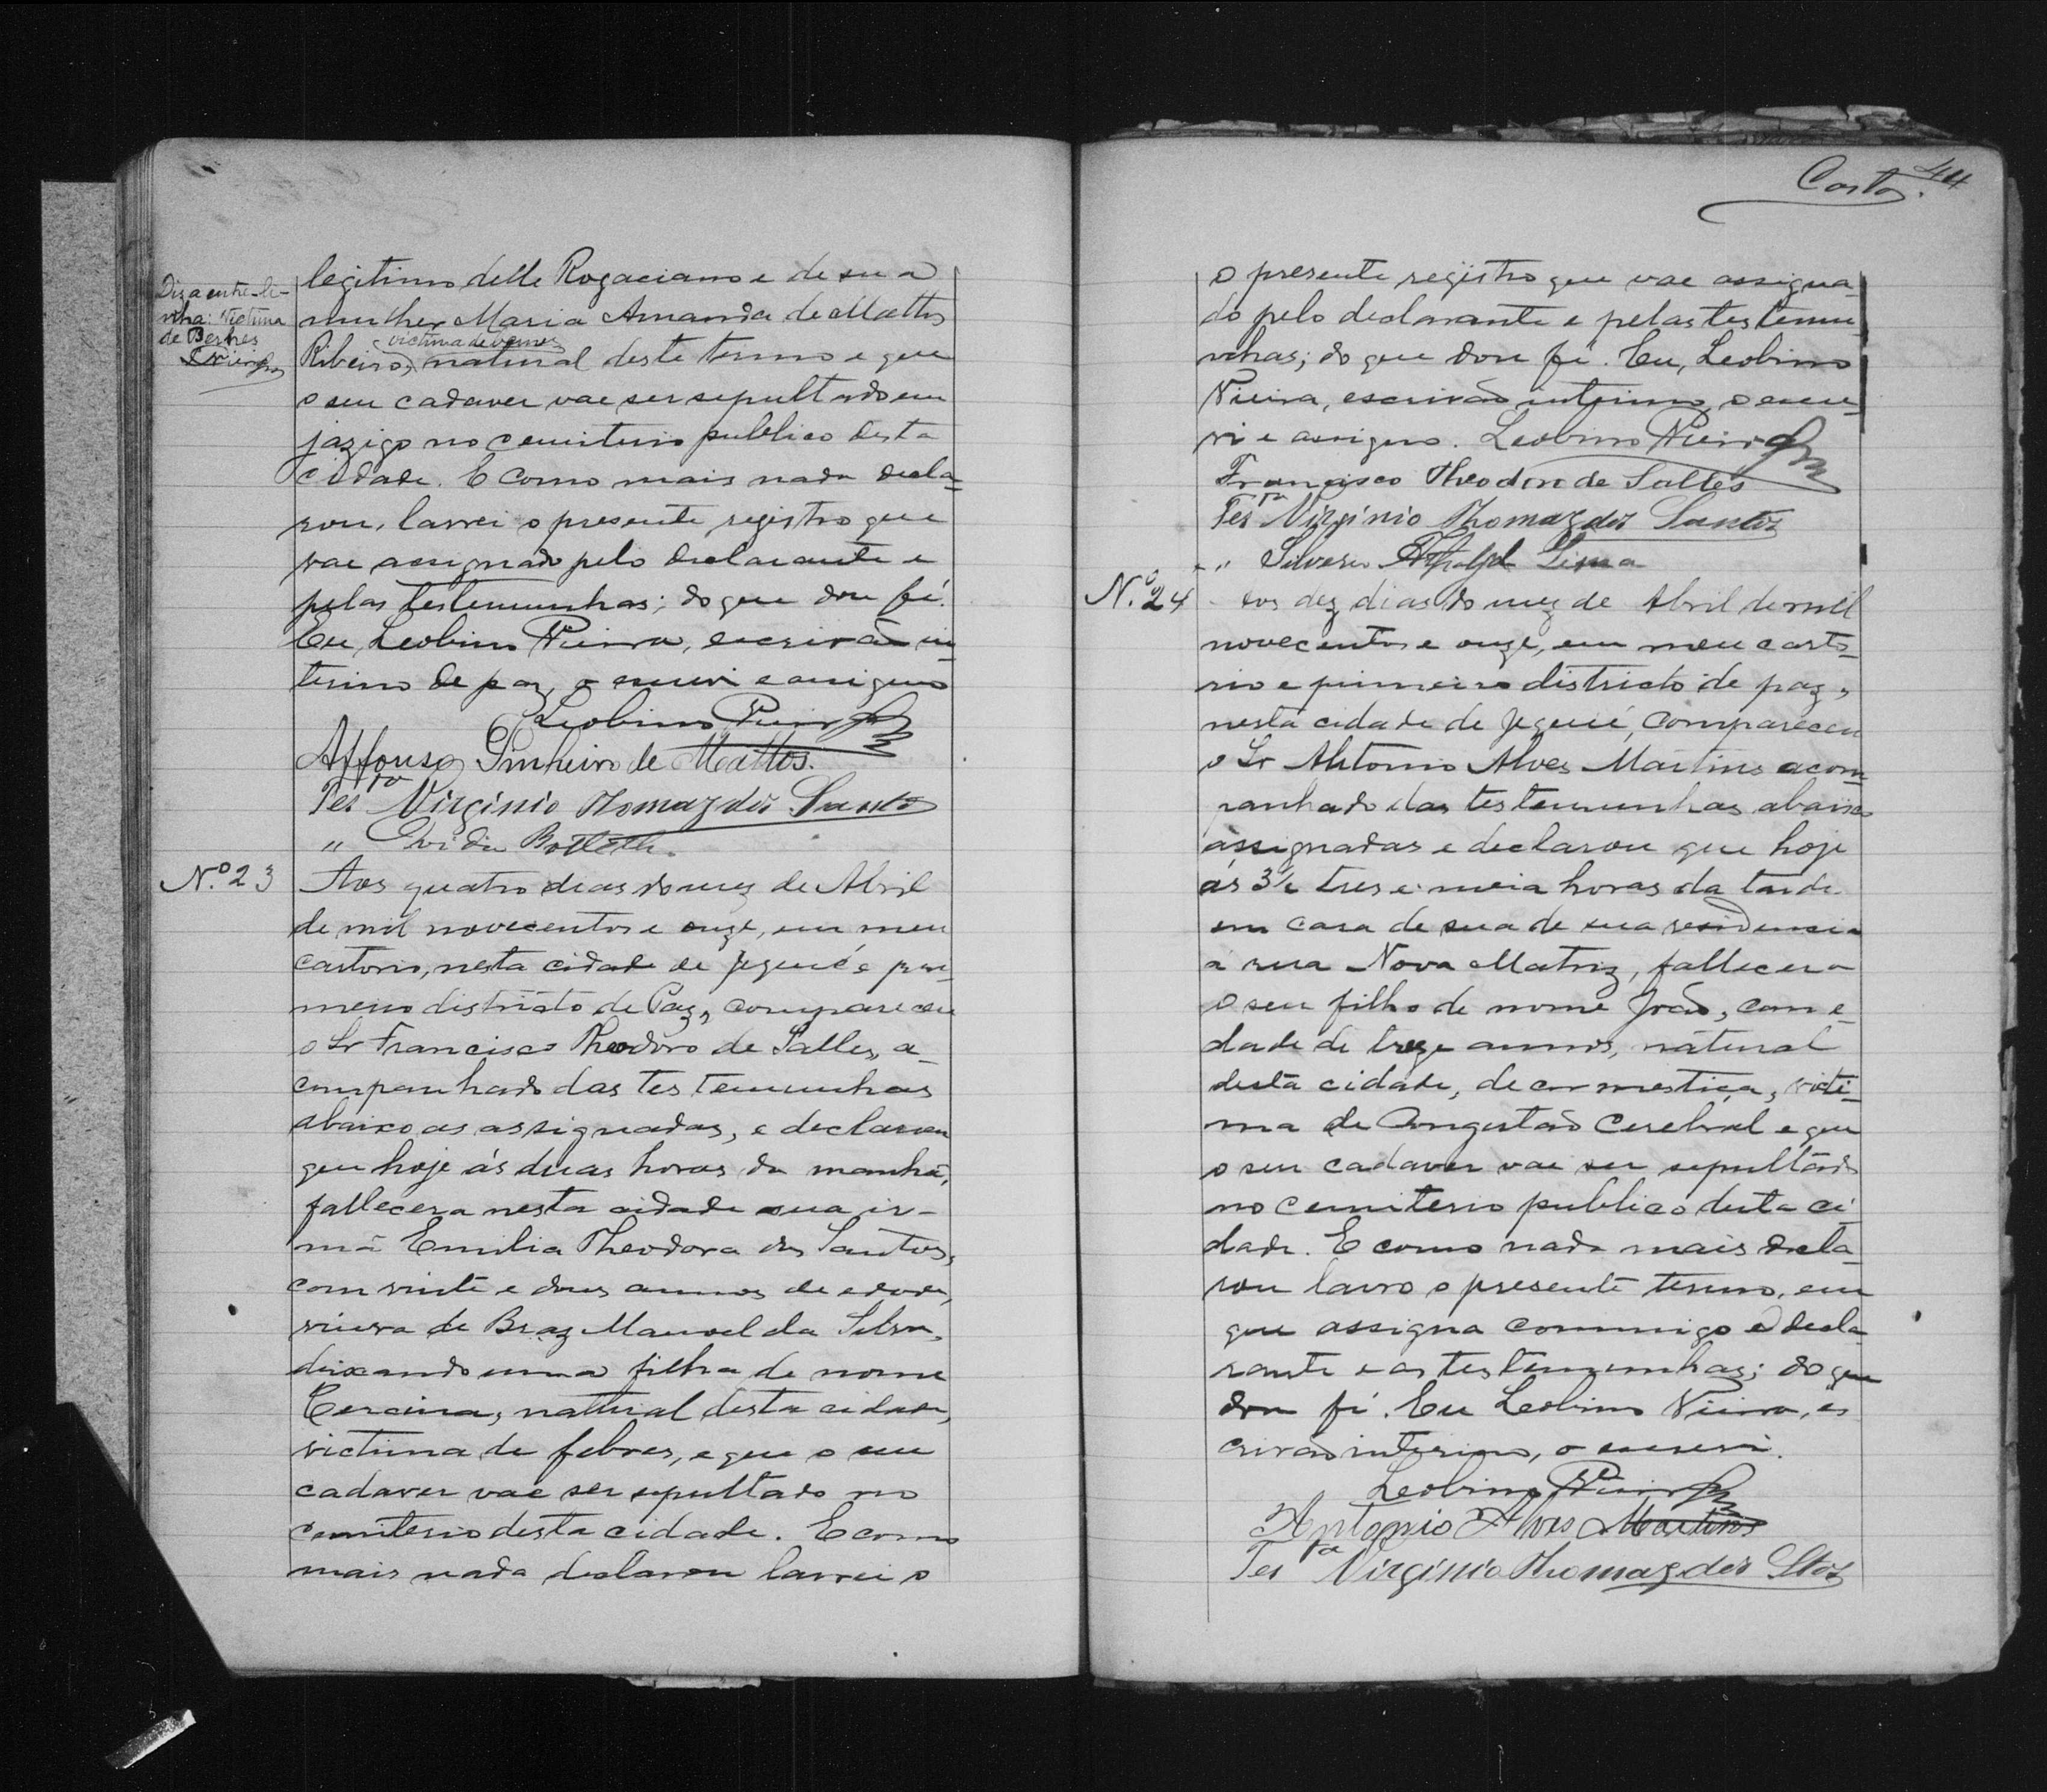 Diz a entre-li-
nha: Victima
de Vermes
LVieira
legitimo delle Rogaciano e de sua
mulher Maria Amanda de Mattos
victima de vermes
Ribeiro, natural deste termo e que
o seu cadaver vae ser sepultado em
jazigo no cemiterio publico desta
cidade. E como mais nada decla-
rou, lavrei o presente registro que
vae assignado pelo declarante e
pelas testemunhas; do que dou fé.
Eu, Leobino Vieira, escrivão in-
terino de paz, o escrevi e assigno
Leobino Vieira
Affonso Pinheiro de Mattos.
Testa Virginio Thomaz dos Santos
" Ovidio
Nº 23
Aos quatro dias do mez de Abril
de mil novecentos e onze, em meu
cartorio, nesta cidade de Jequié e pri-
meiro districto de Paz, compareceu
o Sr Francisco Theodoro de Salles, a-
companhado das testemunhas
abaixo as assignadas, e declarou
que hoje ás duas horas da manhã,
fallecera nesta cidade sua ir-
mã Emilia Theodora dos Santos,
com vinte e dous annos de edade,
viuva de Braz Manoel da Silva,
deixando uma filha de nome
natural desta cidade,
victima de febres, e que o seu
cadaver vae ser sepultado no
cemiterio desta cidade. E como
mais nada declarou lavrei o
Costa. 44
o presente registro que vae assigna-
do pelo declarante e pelas testemu
nhas; do que dou fé. Eu, Leobino
Vieira, escrivão interino, o escre-
vi e assigno. Leobino Vieira
Francisco Theodoro de Salles
Testa Virginio Thomaz dos Santos
" Silverio Lima
Nº 24
aos dez dias do mez de Abril de mil
novecentos e onze, em meu carto-
rio e primeiro districto de paz,
nesta cidade de Jequié, compareceu
o Sr Antonio Alves Martins acom-
panhado das testemunhas abaixo
assignadas e declarou que hoje
ás 3½ tres e meia horas da tarde
em casa de sua de sua residencia
a rua Nova Matriz, fallecera
o seu filho de nome João, com e-
dade de treze annos, natural
desta cidade, de cor mestiça, victi-
ma de Congestão Cerebral e que
o seu cadaver vae ser sepultado
no cemiterio publico desta ci
dade. E como nada mais decla-
rou lavro o presente termo, em
que assigna commigo o decla-
rante e as testemunhas; do que
dou fé. Eu Leobino Vieira, es
crivão interino, o escrevi.
Leobino Vieira
Antonio Alves Martins
Testa Virginio Thomaz dos Stos